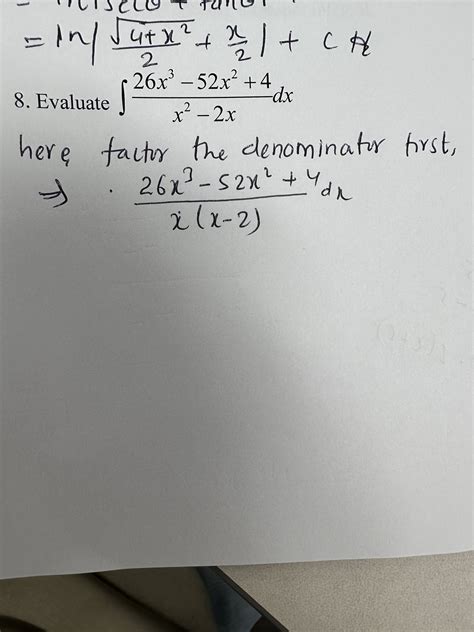 = ln| √4+x² / 2 + x/2 | + C
8. Evaluate ∫ 26x³ − 52x² + 4 / x² − 2x dx
here, factor the denominator first,
⇒ 26x³ − 52x² + 4 / x(x−2) dx